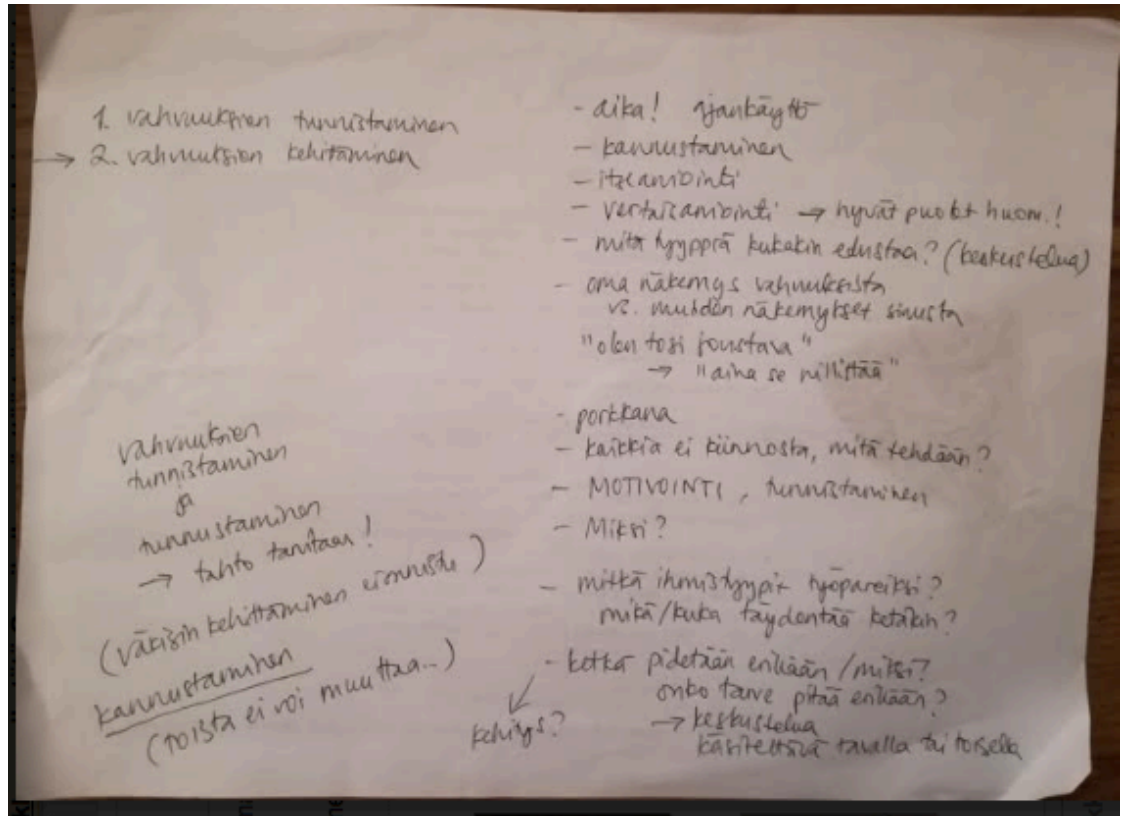 1. vahvuuksien tunnistaminen
→ 2. vahvuuksien kehitäminen
vahvuuksien
tunnistaminen
ja
tunnustaminen
→ tahto tarvitaan!
(väkisin kehittäminen ei onnistu)
kannustaminen
(toista ei voi muuttaa...)
- aika! ajankäyttö
- kannustaminen
- itsearviointi
- vertaisarviointi → hyvät puolet huom.!
- mitä tyyppiä kukakin edustaa? (keskustelua)
- oma näkemys vahvuuksista
vs. muiden näkemykset sinusta
"olen tosi joustava"
→ "aina se nillittää"
- porkkana
- kaikkia ei kiinnosta, mitä tehdään?
- MOTIVOINTI, tunnistaminen
- Miksi?
- mitkä ihmistyypit työpareiksi?
mikä/kuka täydentää ketäkin?
- ketkä pidetään erillään / miksi?
onko tarve pitää erillään?
→ keskustelua
käsiteltävä tavalla tai toisella
kehitys?